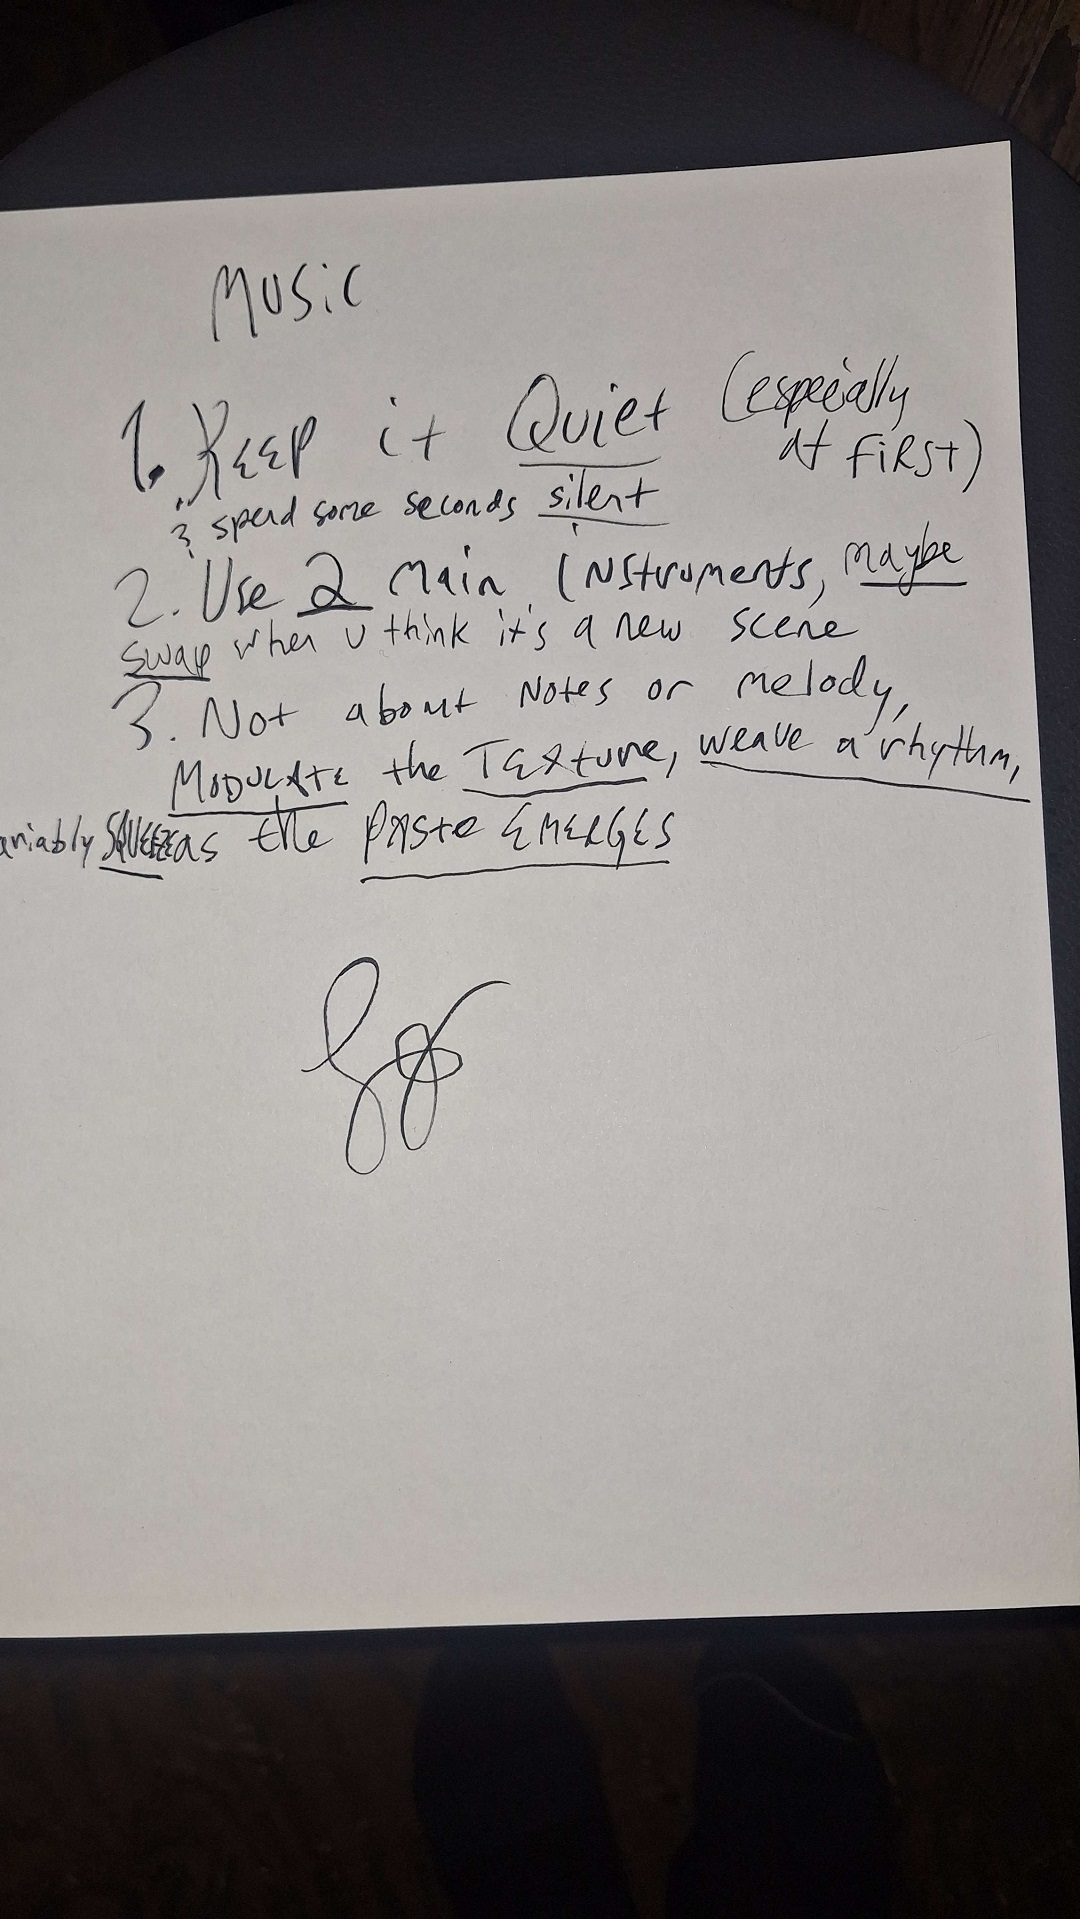 Music
1. Keep it Quiet (especially
at FiRST)
& spend some seconds silent
2. Use 2 main instruments, maybe
swap when u think it's a new scene
3. Not about Notes or melody,
MODULATE the TEXture, weave a rhythm,
ariably SQUEEZE as the PASTE EMERGES